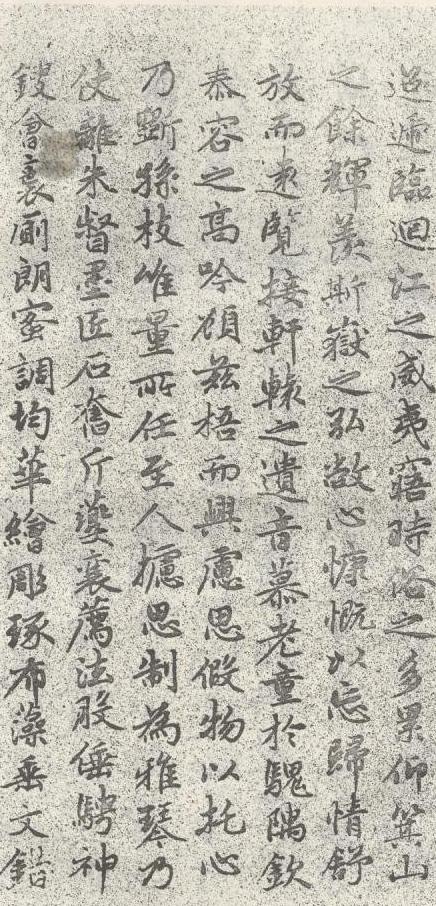 迢遞臨迴江之威夷寤時俗之多累仰箕山
之餘輝羨斯嶽之弘敞心慷慨以忘歸情舒
放而遠覽接軒轅之遺音慕老童於騩隅欽
泰容之高吟顧茲梧而興慮思假物以托心
乃斵孫枝唯量所任至人攄思制為雅琴乃
使離朱督墨匠石奮斤夔襄薦法般倕騁神
鎪會裛廁朗蜜調均華繪彫琢布藻垂文錯